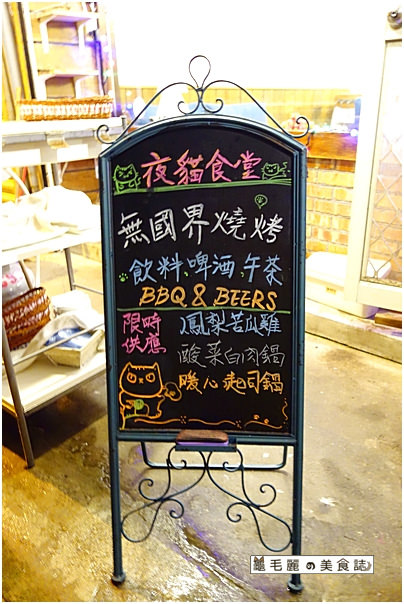 夜貓食堂
無國界燒烤
飲料.啤酒.午茶
BBQ & BEERS
限時供應
鳳梨苦瓜雞
酸菜白肉鍋
暖心起司鍋
毛麗の美食誌